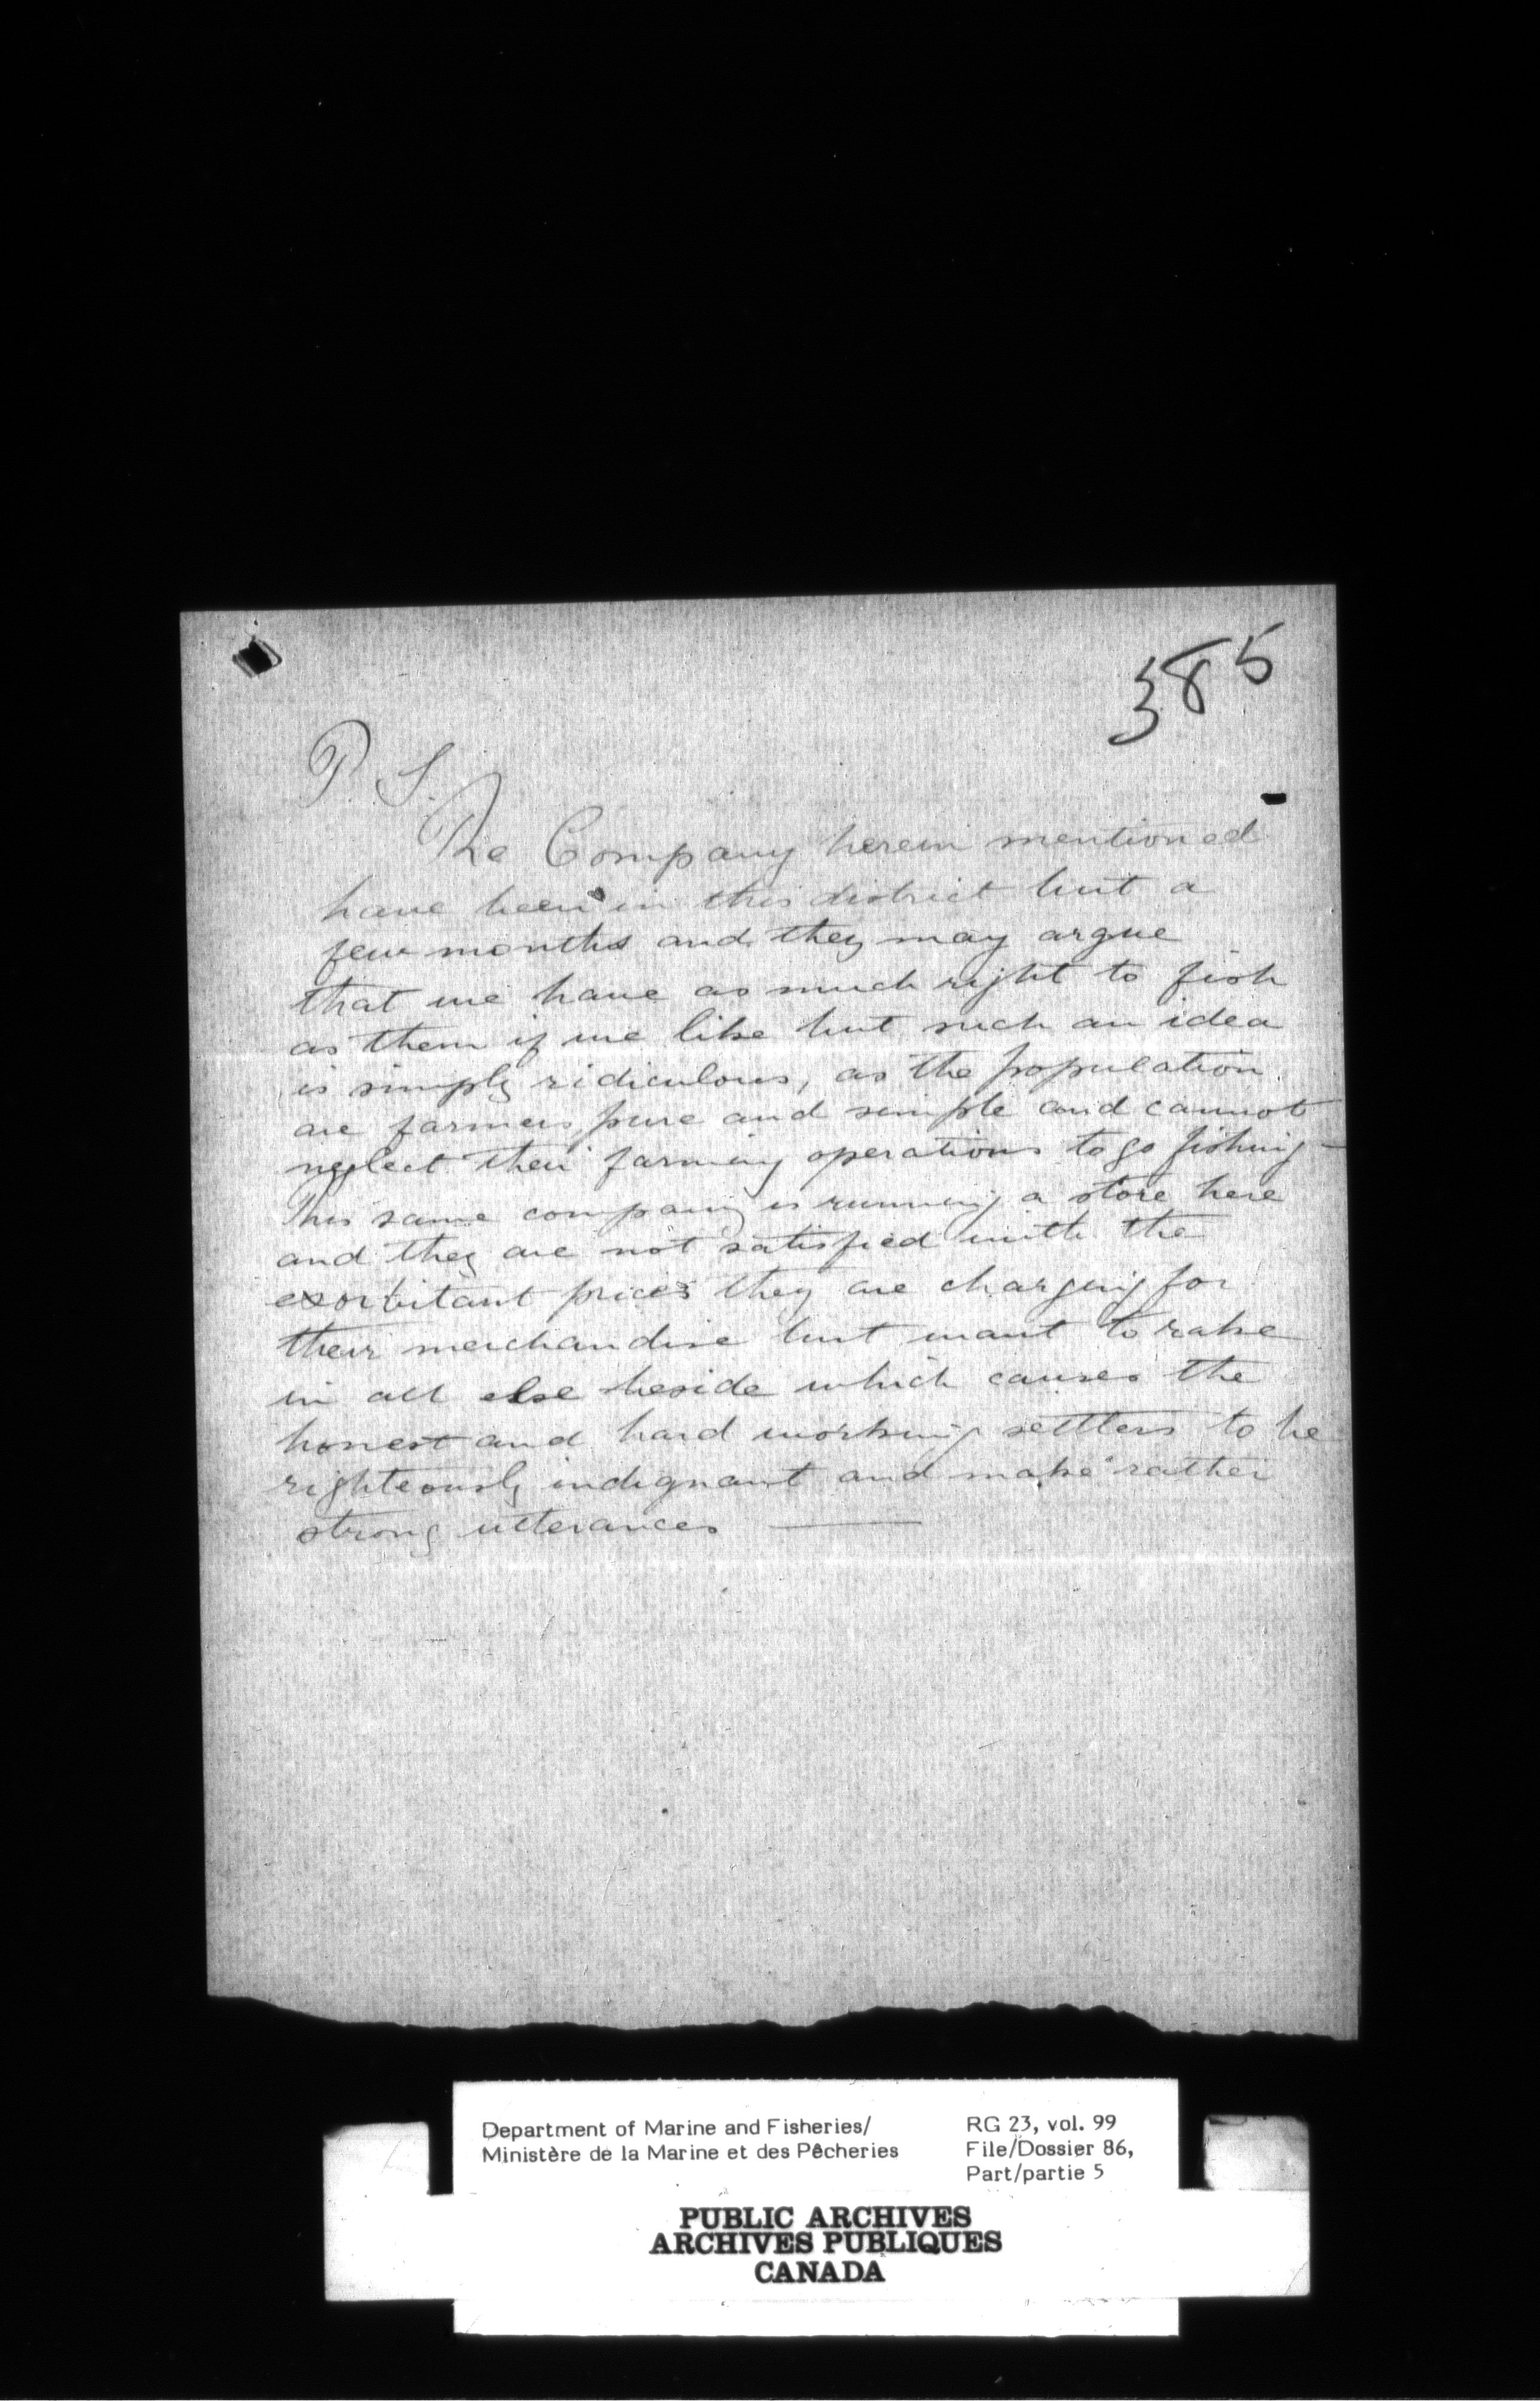 385
P. S.
The Company herein mentioned
have been in this district but a
few months and they may argue
that we have as much right to fish
as them if we like but such an idea
is simply ridiculous, as the population
are farmers pure and simple and cannot
neglect their farming operations to go fishing —
This same company is running a store here
and they are not satisfied with the
exorbitant prices they are charging for
their merchandise but want to rake
in all else beside which causes the
honest and hard working settlers to be
righteously indignant and make rather
strong utterances ———
Department of Marine and Fisheries/
Ministère de la Marine et des Pêcheries
RG 23, vol. 99
File/Dossier 86,
Part/partie 5
PUBLIC ARCHIVES
ARCHIVES PUBLIQUES
CANADA